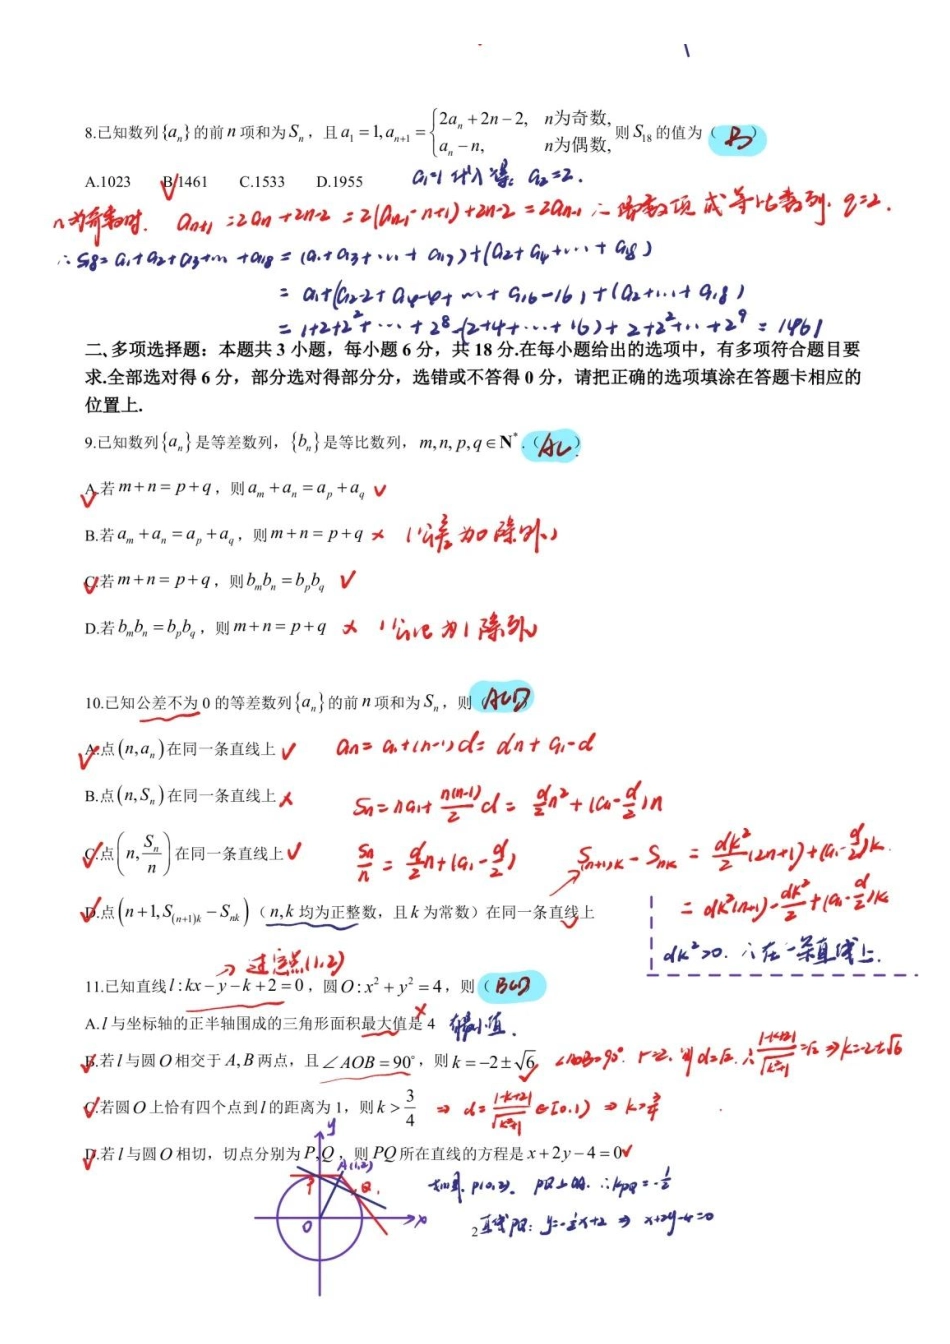 8.已知数列{aₙ}的前n项和为Sₙ，且a₁=1,aₙ₊₁={2aₙ+2n−2, n为奇数, aₙ−n, n为偶数, 则S₁₈的值为（ B ）
A.1023 B.1461 C.1533 D.1955 a₁=1代入得: a₂=2.
n为奇数时. aₙ₊₁=2aₙ+2n-2=2(aₙ₋₁-n+1)+2n-2=2aₙ₋₁ ∴偶数项成等比数列. q=2.
∴S₁₈=a₁+a₂+a₃+…+a₁₈=(a₁+a₃+…+a₁₇)+(a₂+a₄+…+a₁₈)
=a₁+(a₂-2+a₄-4+…+a₁₆-16)+(a₂+…+a₁₈)
=1+2+2²+…+2⁸-(2+4+…+16)+2+2²+…+2⁹=1461
二、多项选择题：本题共3小题，每小题6分，共18分.在每小题给出的选项中，有多项符合题目要
求.全部选对得6分，部分选对得部分分，选错或不答得0分，请把正确的选项填涂在答题卡相应的
位置上.
9.已知数列{aₙ}是等差数列，{bₙ}是等比数列，m,n,p,q∈N*.（ AC ）
A.若m+n=p+q，则aₘ+aₙ=aₚ+a_q ✓
B.若aₘ+aₙ=aₚ+a_q，则m+n=p+q × (公差为0除外)
C.若m+n=p+q，则bₘbₙ=bₚb_q ✓
D.若bₘbₙ=bₚb_q，则m+n=p+q × (公比为1除外)
10.已知公差不为0的等差数列{aₙ}的前n项和为Sₙ，则（ ACD
A.点(n,aₙ)在同一条直线上 ✓ aₙ=a₁+(n-1)d=dn+a₁-d
B.点(n,Sₙ)在同一条直线上 × Sₙ=na₁+n(n-1)/2 d=d/2 n²+(a₁-d/2)n
C.点(n,Sₙ/n)在同一条直线上 ✓ Sₙ/n=d/2 n+(a₁-d/2) S₍ₙ₊₁₎ₖ-Sₙₖ=dk²/2(2n+1)+(a₁-d/2)k
D.点(n+1,S₍ₙ₊₁₎ₖ−Sₙₖ)（n,k均为正整数，且k为常数）在同一条直线上 ✓ =dk²(n+1)-dk²/2+(a₁-d/2)k
dk²>0. ∴在一条直线上.
→过定点(1,2)
11.已知直线l:kx−y−k+2=0，圆O:x²+y²=4，则（ BCD
A.l与坐标轴的正半轴围成的三角形面积最大值是4 × 有最小值.
B.若l与圆O相交于A,B两点，且∠AOB=90°，则k=−2±√6 ✓ ∠AOB=90°. r=2. 则d=√2. ∴|-k+2|/√(k²+1)=√2⇒k=-2±√6
C.若圆O上恰有四个点到l的距离为1，则k>3/4 ⇒ d=|-k+2|/√(k²+1)∈[0,1) ⇒ k>3/4
D.若l与圆O相切，切点分别为P,Q，则PQ所在直线的方程是x+2y−4=0 ✓
y
A(1,2)
P Q
O x
如图. P(0,2). PQ⊥OA. ∴kPQ=-1/2
直线PQ: y=-1/2x+2 ⇒ x+2y-4=0
2